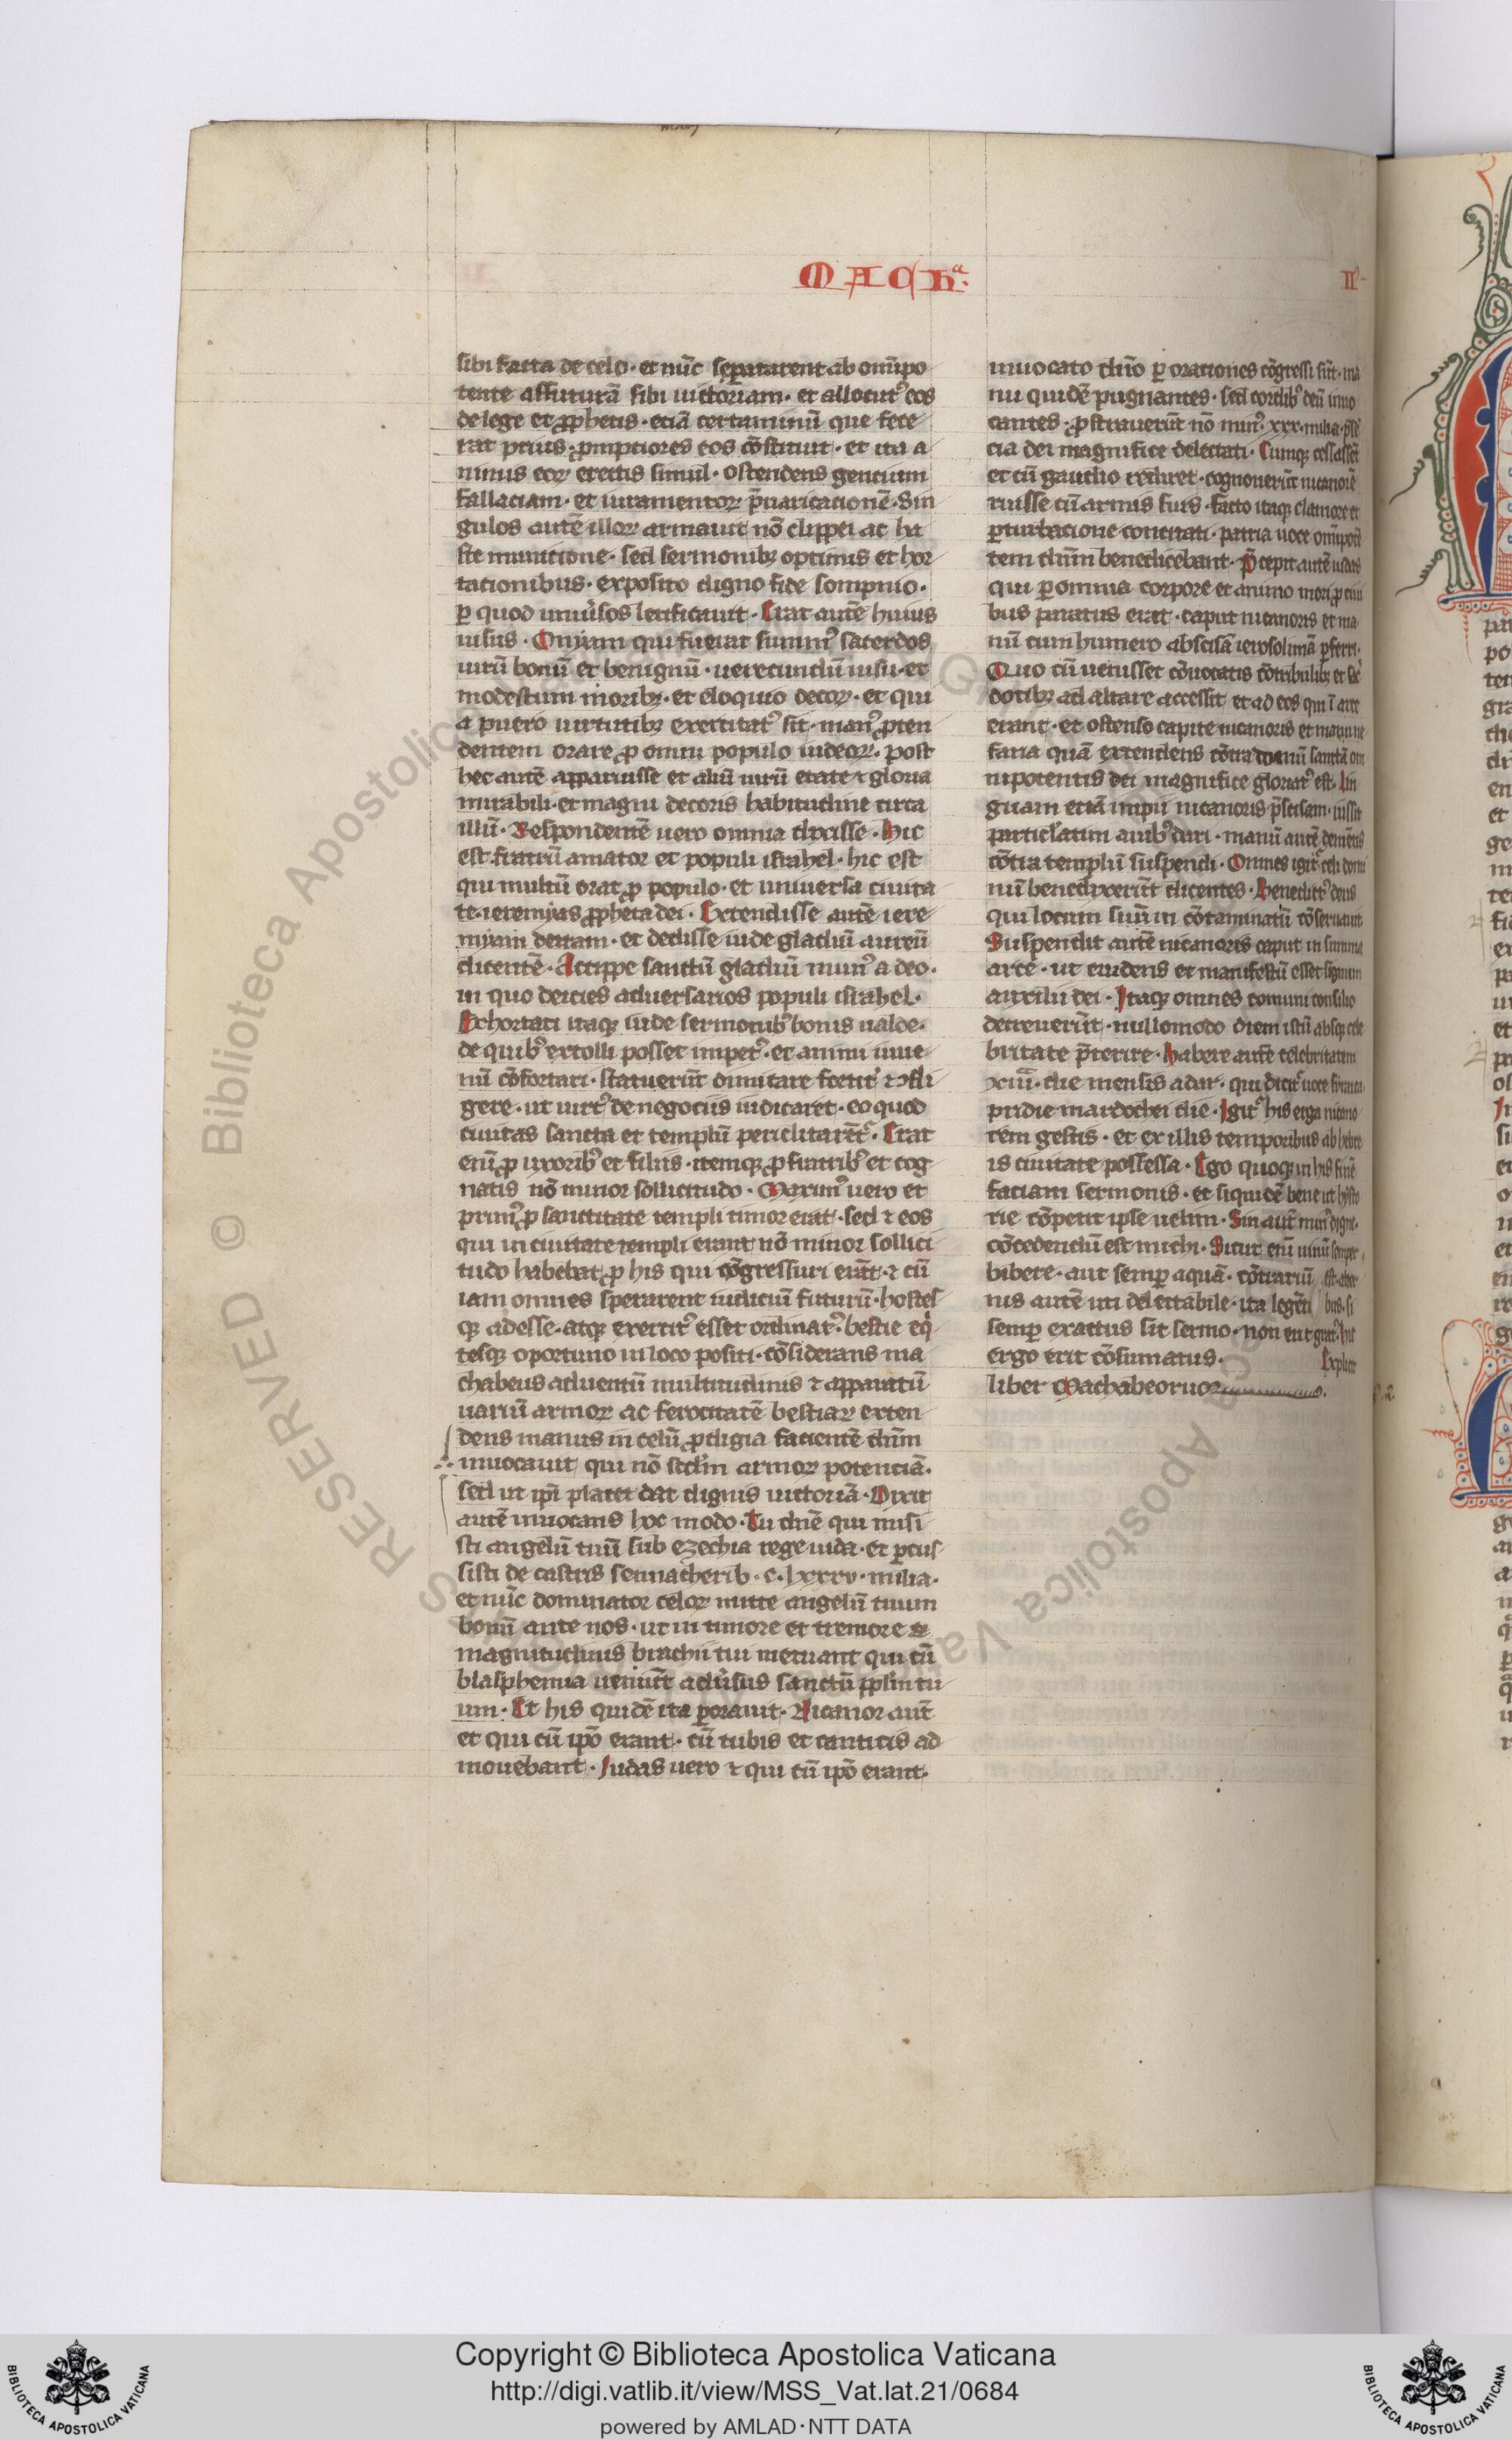 MACHᵃ.
IIᵒ
sibi facta de celo · et nūc sperarent ab omīpo
tente affuturā sibi uictoriam · et allocutꝰ eos
de lege et ꝓphetis · etiā certaminū que fece
rat prius · ꝓmptiores eos cōstituit · et ita a
nimis eoꝝ erectis simul · ostendens gentium
fallaciam · et iuramentoꝝ p̄uaricationē · Sin
gulos autē illoꝝ armauit nō clippei ac ha
ste munitione · sed sermonibꝫ optimis et hor
tationibus · exposito digno fide sompnio ·
ꝑ quod uniūsos letificauit · Erat autē huius
uisus · Onyam qui fuerat summꝰ sacerdos
uirū bonū et benignū · uerecundū uisu · et
modestum moribꝫ · et eloquio decoꝝ · et qui
a puero uirtutibꝫ exercitatꝰ sit · manꝰ ꝓten
dentem orare ꝓ omni populo iudeoꝝ · post
hec autē apparuisse et aliū uirū etate ⁊ gloria
mirabili · et magni decoris habitudine circa
illū · Respondentē uero omnia dixisse · Hic
est fratrū amator et populi israhel · hic est
qui multū orat ꝓ populo · et uniuersa ciuita
te · ieremyas ꝓpheta dei · Extendisse autē iere
myam dextam · et dedisse iude gladiū aureū
dicentē · Accipe sanctū gladiū munꝰ a deo ·
in quo deicies aduersarios populi israhel ·
Exhortati itaqꝫ iude sermonibꝰ bonis ualde ·
de quibꝰ extolli posset impetꝰ · et animi iuue
nū cōfortari · statuerūt dimicare fortit᷑ ⁊ ꝯfli
gere · ut uirtꝰ de negociis iudicaret · eo quod
ciuitas sancta et templū periclitarēt᷑ · Erat
enī ꝓ uxoribꝰ et filiis · itemqꝫ ꝓ fratribꝰ et cog
natis nō minor sollicitudo · Maximꝰ uero et
primꝰ ꝓ sanctitate templi timor erat · sed ⁊ eos
qui in ciuitate templi erant nō minor sollici
tudo habebat ꝓ his qui cōgressuri erāt · ⁊ cū
iam omnes sperarent iudiciū futurū · hostes
qꝫ adesse · atqꝫ exercitꝰ esset ordinatꝰ · bestie eq̇
tesqꝫ oportuno in loco positi · cōsiderans ma
chabeus aduentū multitudinis ⁊ apparatū
uariū armoꝝ ac ferocitatē bestiaꝝ exten
dens manus in celū ꝓdigia facientē dn̄m
inuocauit qui nō scdm̄ armoꝝ potenciā ·
sed ut ip̄i placet dat dignis uictoriā · Dixit
autē inuocans hoc modo · Tu dn̄e qui misi
sti angelū tuū sub ezechia rege iuda · et ꝑcus
sisti de castris sennacherib · c · lxxxv · milia ·
et nūc dominator celoꝝ mitte angelū tuum
bonū ante nos · ut in timore et tremore
magnitudinis brachii tui metuant qui cū
blasphemia ueniūt adūsus sanctū ppl̄m tu
um · Et his quidē ita ꝑorauit · Nicanor aut̄
et qui cū ip̄o erant · cū tubis et canticis ad
mouebant · Iudas uero ⁊ qui cū ip̄o erant ·
inuocato dn̄o ꝑ orationes cōgressi sūt · ma
nu quidē pugnantes · sed cordibꝰ deū inuo
cantes · ꝓstrauerūt nō minꝰ · xxx · milia · p̄sē
cia dei magnifice delectati · Cumqꝫ cessassēt
et cū gaudio redirēt · cognouerūt nicanorē
ruisse cū armis suis · facto itaqꝫ clamore et
ꝑturbacione concitati · patria uoce omīpotē
tem dn̄m benedicebant · P̄cepit autē iudas
qui ꝑ omnia corpore et animo mori ꝓ ciui
bus paratus erat · caput nicanoris et ma
nū cum humero abscisā ierosolimā ꝑferri ·
Quo cū uenisset cōuocatis cōtribulibꝫ et sac̄
dotibꝫ ad altare accessit et ad eos qui ī arce
erant · et ostenso capite nicanoris et manu ne
faria quā extendens cōtra domū sanctā om
nipotentis dei magnifice gloriatꝰ est · Lin
guam etiā impii nicanoris p̄scisam · iussit
particl̄atim auibꝰ dari · manū autē demētis
cōtra templū suspendi · Omnes igit᷑ celi domi
nū benedixerūt dicentes · Benedictꝰ deus
qui locum suū in cōtaminatū cōseruauit
Suspendit autē nicanoris caput in summa
arce · ut euidens et manifestū esset signum
auxilii dei · Itaqꝫ omnes comuni consilio
decreuerūt · nullomodo diem istū absqꝫ cele
britate p̄terire · Habere autē celebritatem
xiiiᵃ · die mensis adar · qui dicit᷑ uoce siriaca
pridie mardochei die · Igit᷑ his erga nicano
rem gestis · et ex illis temporibus ab hebre
is ciuitate possessa · Ego quoqꝫ in his finē
faciam sermonis · et siquidē bene ut hysto
rie cōpetit ipse uelim · Sin aut̄ minꝰ digne ·
cōcedendū est michi · Sicut enī uinū semper
bibere · aut semꝑ aquā · cōtrariū est · alter
nis autē uti delectabile · ita legēti bus · si
semꝑ exactus sit sermo · non erit gratꝰ · hic
ergo erit cōsumatus · Explicit
liber Machabeoruꝝ
Copyright © Biblioteca Apostolica Vaticana
http://digi.vatlib.it/view/MSS_Vat.lat.21/0684
powered by AMLAD·NTT DATA
BIBLIOTECA APOSTOLICA VATICANA
BIBLIOTECA APOSTOLICA VATICANA